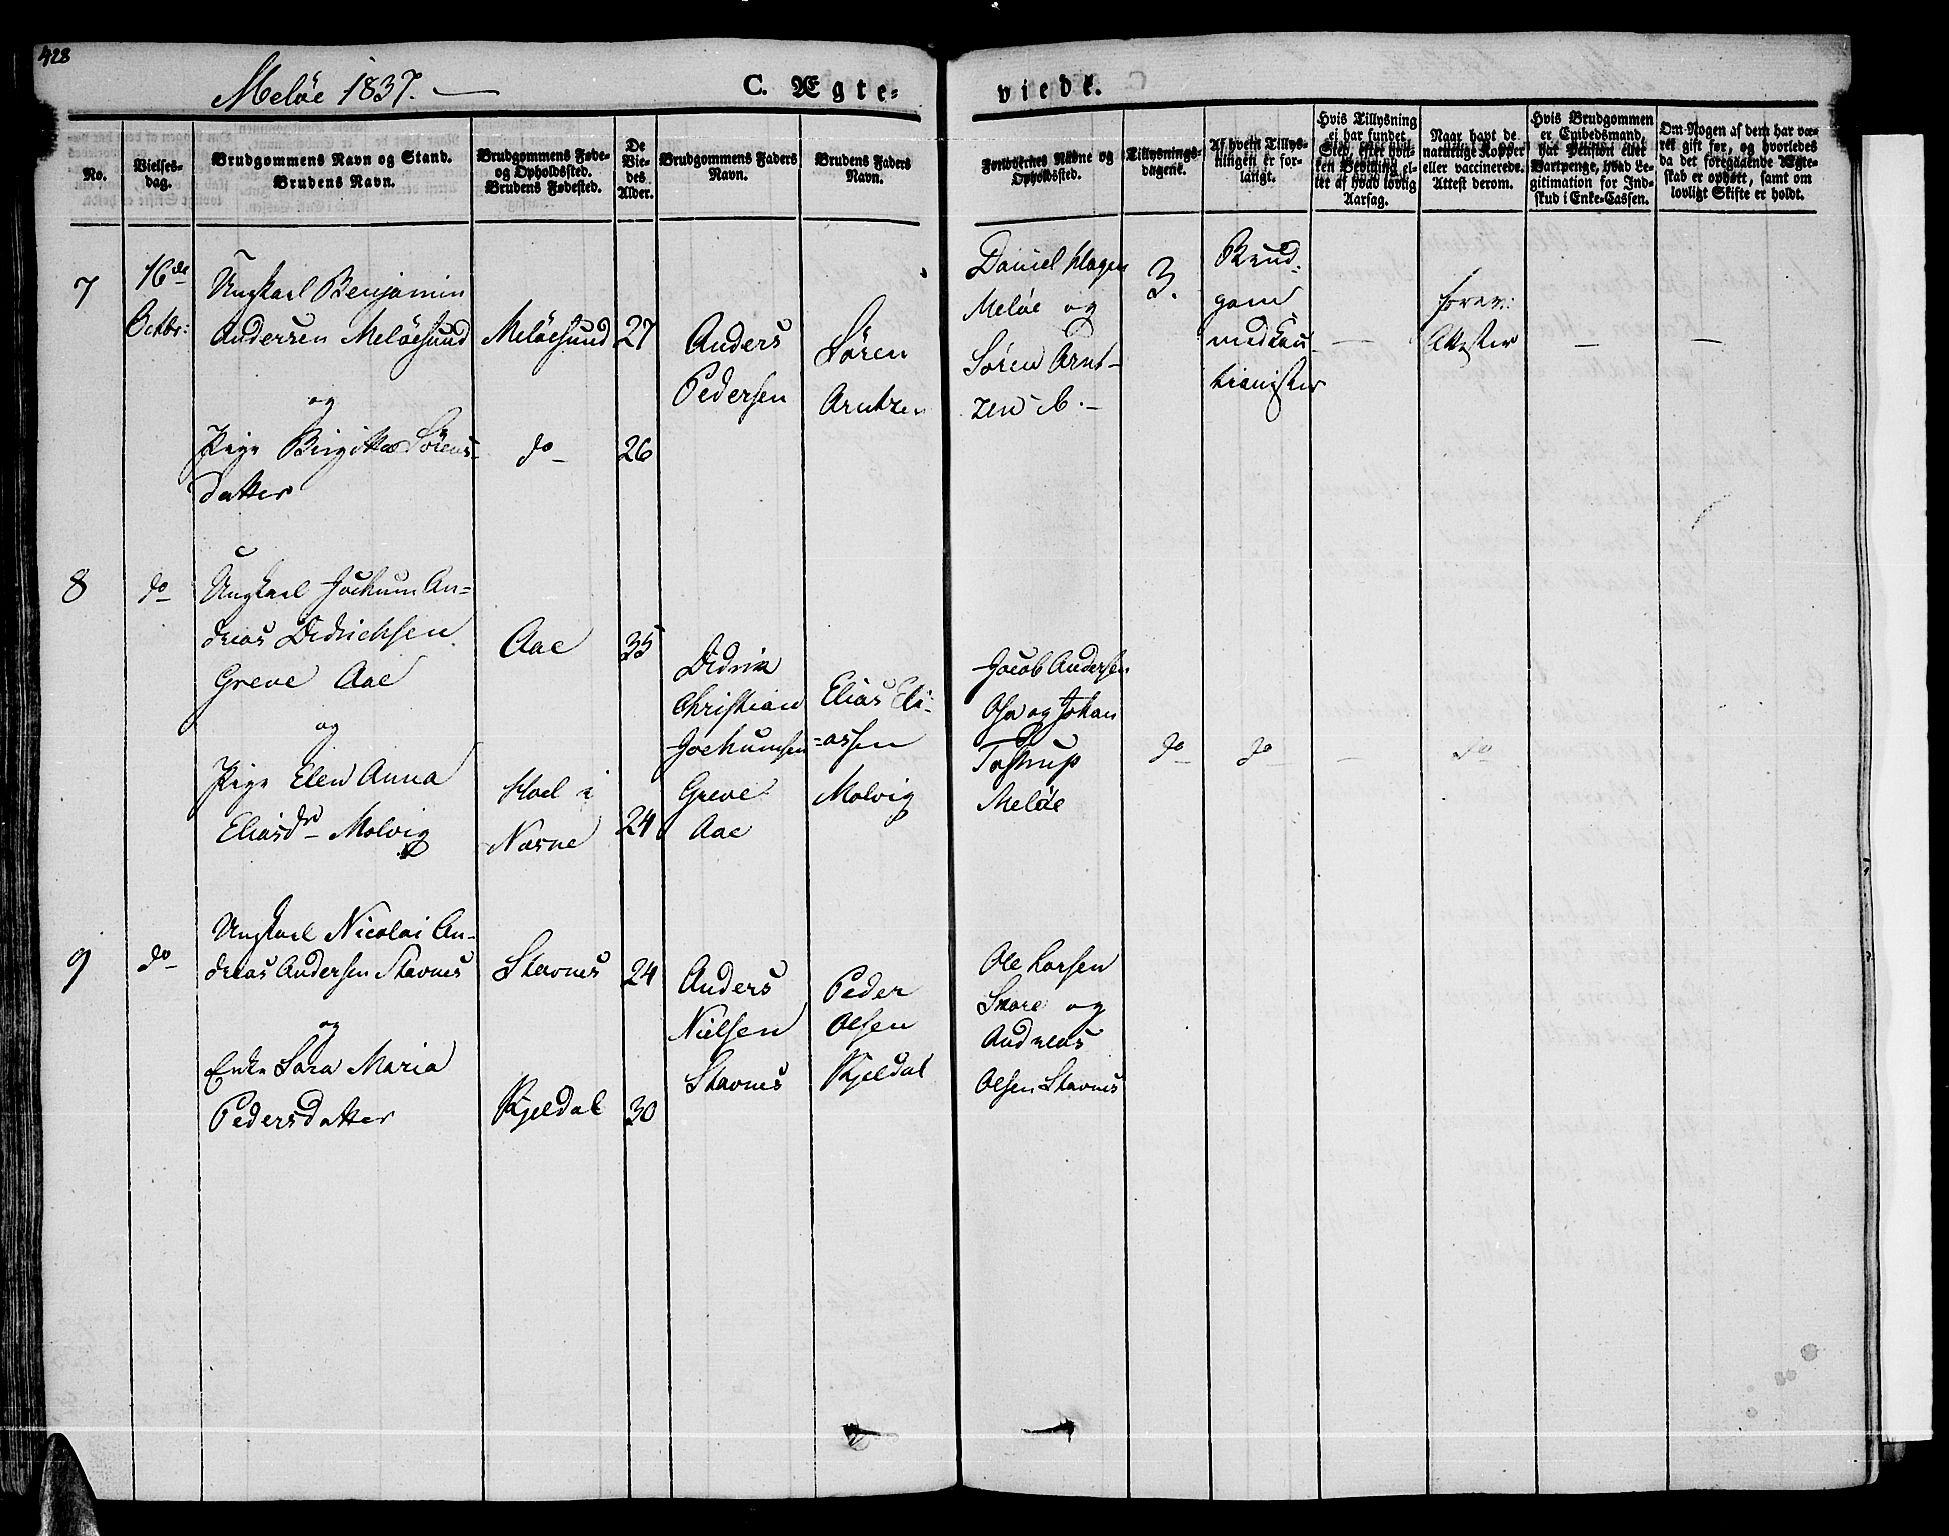 428
Meløe 1837. —
C. Ægte-
viede.
No.
Vielses-
dag.
Brudgommens Navn og Stand.
Brudens Navn.
Brudgommens Føde-
og Opholdssted.
Brudens Fødested.
De
Vie-
des
Alder.
Brudgommens Faders
Navn.
Brudens Faders
Navn.
Forlovernes Navne og
Opholdssted.
Tillysnings-
dagene.
Af hvem Tillys-
ningen er for-
langt.
Hvis Tillysning
ei har fundet
Sted, efter hvil-
ken Bevilling el-
ler af hvad lovlig
Aarsag.
Naar havt de
naturlige Kopper
eller vaccinerede.
Attest derom.
Hvis Brudgommen
er Embedsmand,
har Pension eller
Vartpenge, hvad Le-
gitimation for Ind-
skud i Enke-Cassen.
Om Nogen af dem har væ-
ret gift før, og hvorledes
da det foregaaende Ægte-
skab er ophørt, samt om
lovligt Skifte er holdt.
7
16de
Octbr:
Ungkarl Benjamin
Andersen Meløesund
og
Pige Birgitte Sørens-
datter
Meløesund
do
27
26
Anders
Pedersen
Søren
Arntzen
Daniel Hagen
Meløe og
Søren Arnt-
zen ib. -
3.
Brud-
gom
med Cau-
tionister
—
frev:
Attester
—
—
8
do
Ungkarl Jochum An-
dreas Didrichsen
Greve Aae
og
Pige Elen Anna
Eliasdr Molvig
Aae
Hoel i
Næsne
35
24
Didrik
Christian
Jochumsen
Greve
Aae
Elias Eli-
-assen
Molvig
Jacob Andersen
og Johan
Tostrup
Meløe
do
do
—
do
9
do
Ungkarl Nicolai An-
dreas Andersen Stavnes
og
Enke Sara Maria
Pedersdatter
Stavnes
Kjeldal
24
30
Anders
Nielsen
Stavnes
Peder
Olsen
Kjeldal
Ole Larsen
Skare og
Andreas
Olsen Stavnes